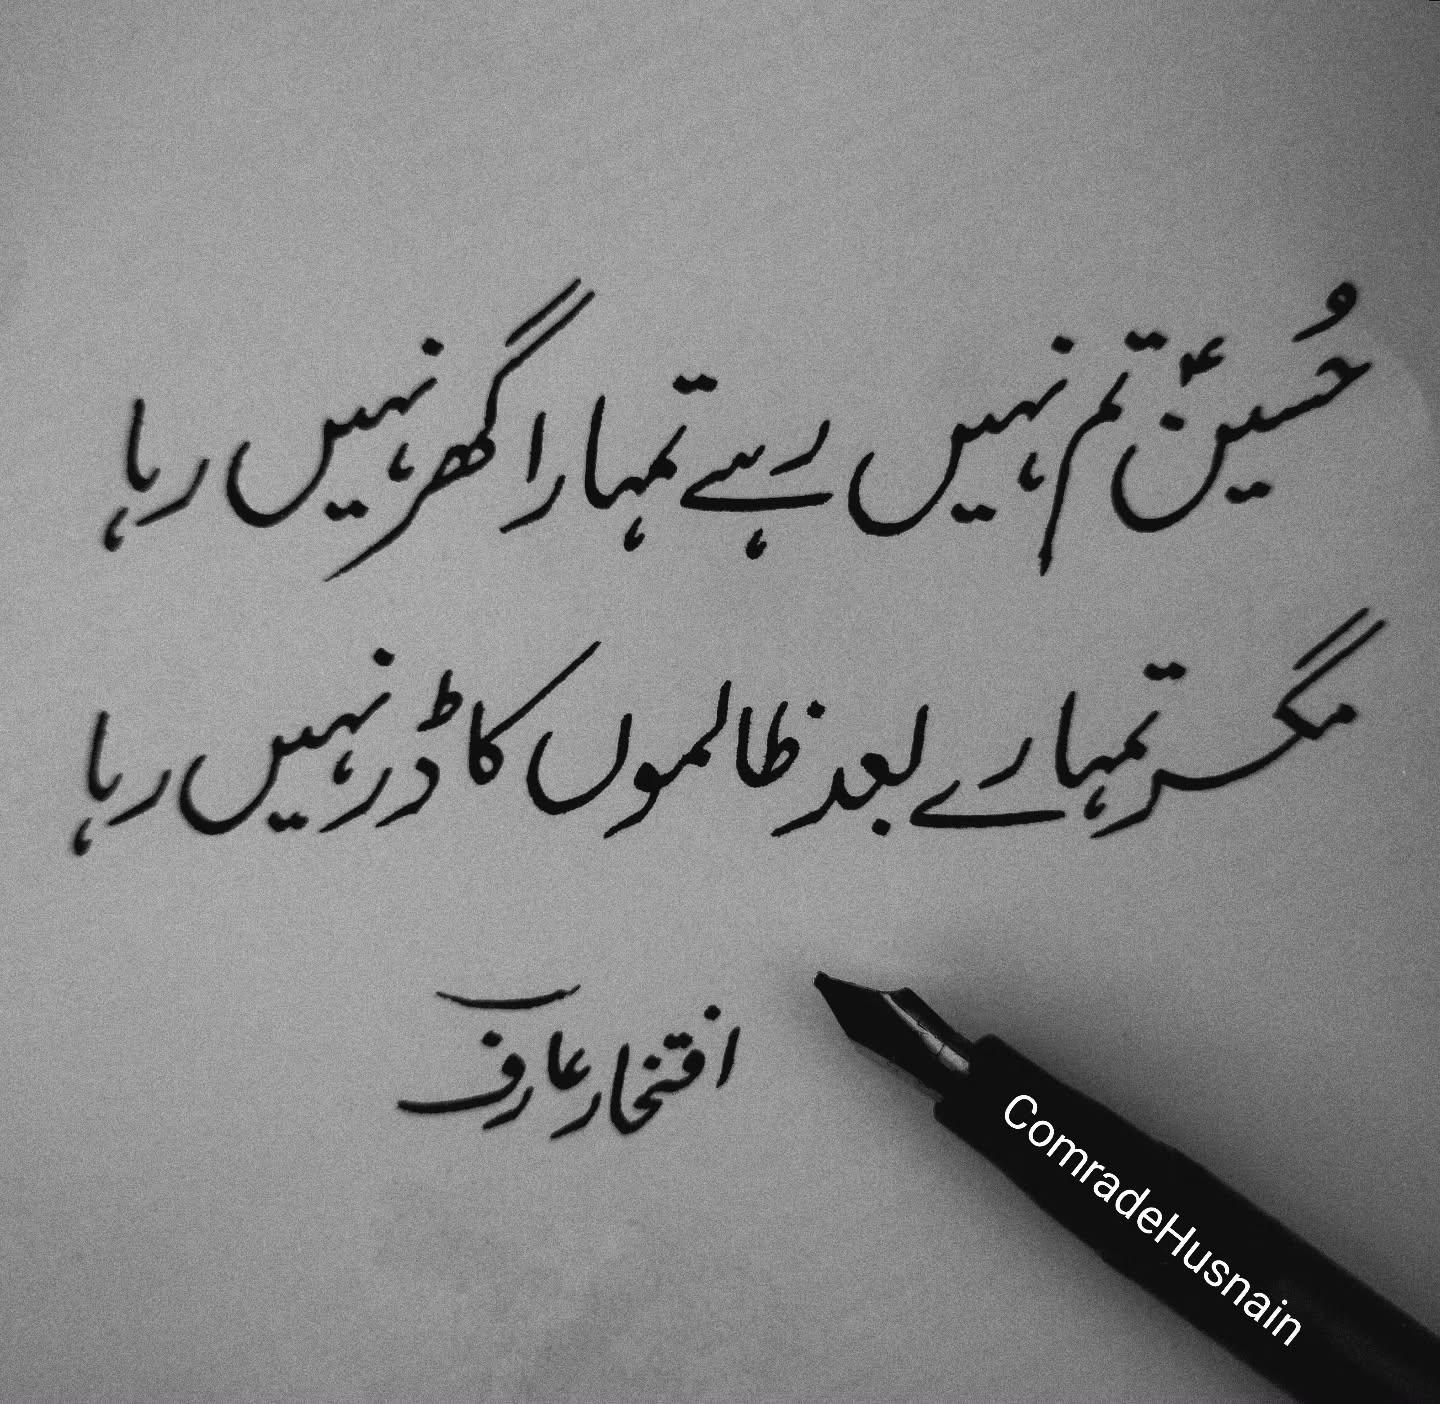 حُسینؑ تم نہیں رہے تمہارا گھر نہیں رہا
مگر تمہارے بعد ظالموں کا ڈر نہیں رہا
افتخار عارف
ComradeHusnain